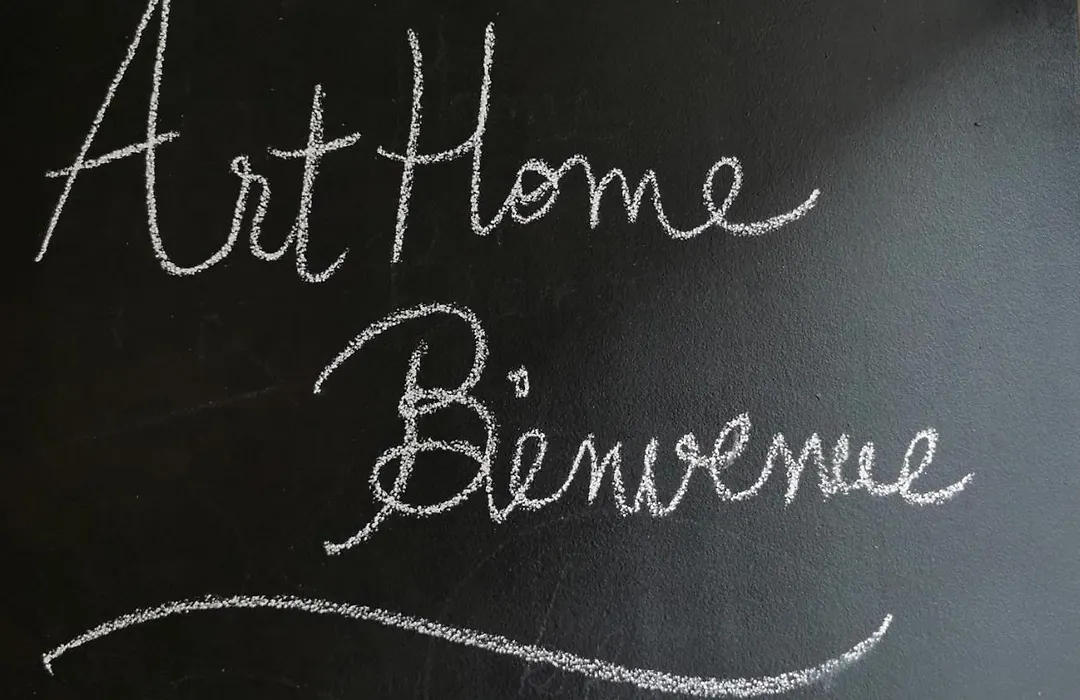 Art Home
Bienvenue